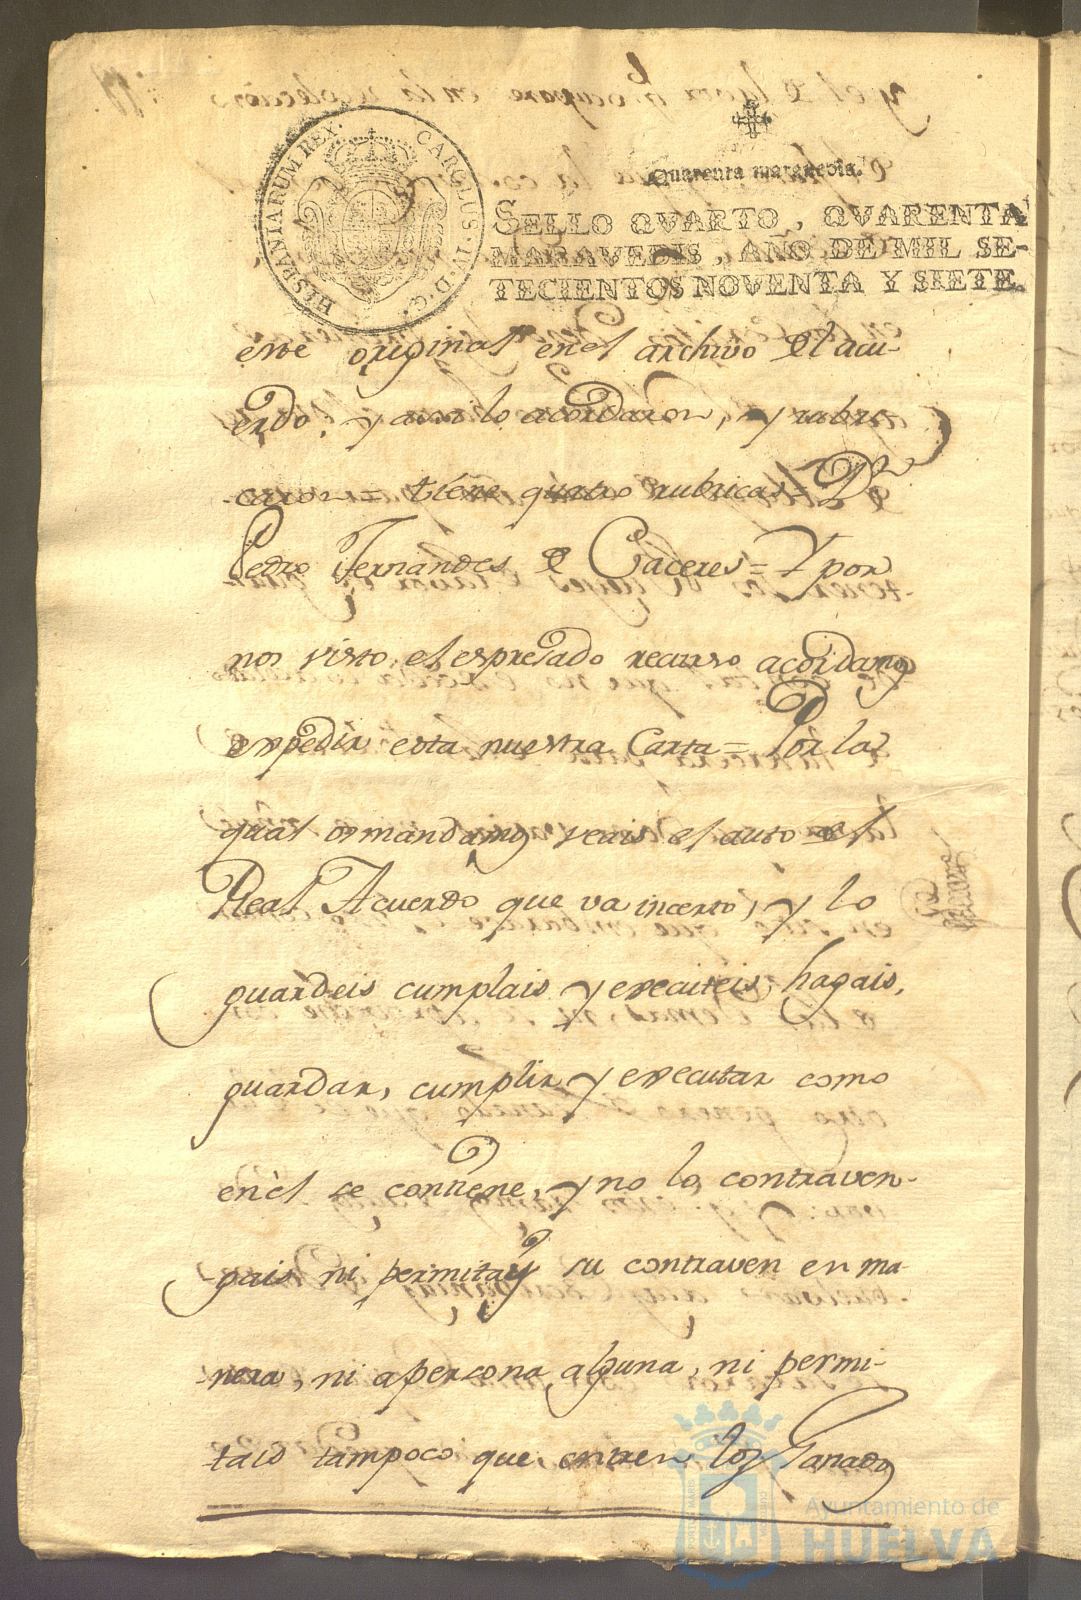 HISPANIARUM REX. CAROLUS IV. D. G.
Quarenta maravedis.
SELLO QVARTO, QVARENTA
MARAVEDIS, AÑO DE MIL SE-
TECIENTOS NOVENTA Y SIETE.
este original en el archivo del acu-
erdo. y assi lo acordaron, y rubri-
caron = tiene quatro rubricas = Dn
Pedro Fernandes de Caceres = Y por
nos visto el espresado recurso acordamos
expedir esta nuestra Carta = Por la
qual os mandamos veais el auto del
Real Acuerdo que va incerto, y lo
guardeis cumplais y executeis, hagais,
guardar, cumplir y executar como
en èl se contiene, y no lo contraven-
gais ni permitays su contraven en ma-
nera, ni a persona alguna, ni permi-
tais tampoco que entren los Ganados
Ayuntamiento de
HUELVA